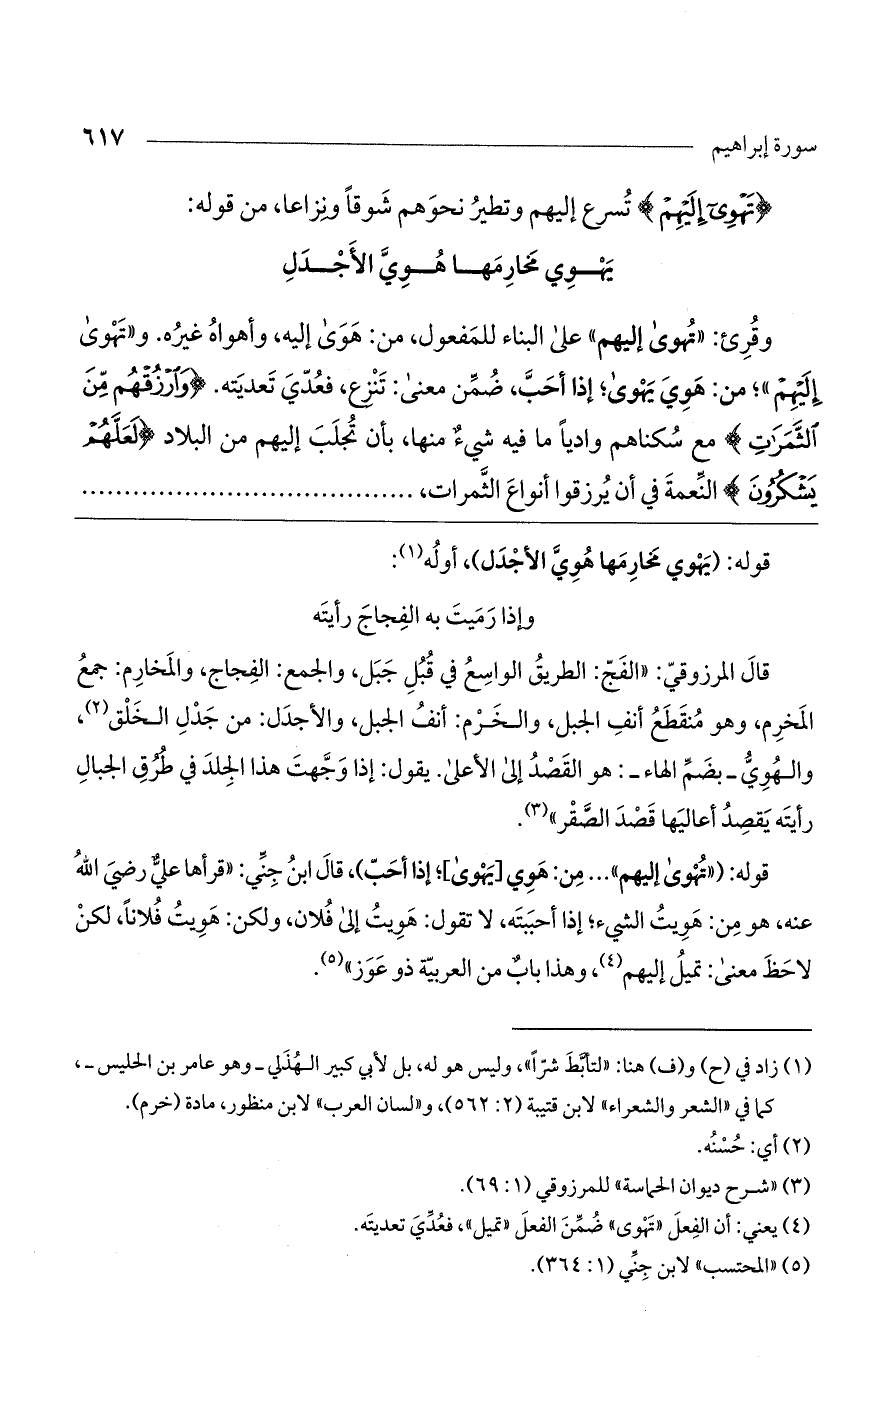 سورة إبراهيم ٦١٧
﴿تَهْوِىٓ إِلَيْهِمْ﴾ تُسرع إليهم وتطيرُ نحوَهم شَوقاً ونِزاعا، من قوله:
يَهْوِي مَخارِمَها هُوِيَّ الأَجْدَلِ
وقُرِئ: «تُهوىٰ إليهم» علىٰ البناء للمَفعول، من: هَوَىٰ إليه، وأهواهُ غيرُه. و«تَهْوىٰ
إِلَيْهِمْ»؛ من: هَوِيَ يَهْوىٰ؛ إذا أحَبَّ، ضُمِّن معنىٰ: تَنْزِع، فعُدِّيَ تَعديَته. ﴿وَٱرْزُقْهُم مِّنَ
ٱلثَّمَرَٰتِ﴾ مع سُكناهم وادياً ما فيه شيءٌ منها، بأن تُجلَبَ إليهم من البلاد ﴿لَعَلَّهُمْ
يَشْكُرُونَ﴾ النِّعمةَ في أن يُرزقوا أنواعَ الثَّمرات، ......................................
قوله: (يَهْوي مَخارِمَها هُوِيَّ الأجْدَل)، أولُه(١):
وإذا رَمَيتَ به الفِجاجَ رأيتَه
قالَ المرزوقيّ: «الفَجّ: الطريقُ الواسِعُ في قُبُلِ جَبَل، والجمع: الفِجاج، والمَخارِم: جمعُ
المَخرِم، وهو مُنقَطَعُ أنفِ الجبل، والـخَـرْم: أنفُ الجبل، والأجدَل: من جَدْلِ الـخَلْق(٢)،
والـهُوِيُّ ـ بضَمِّ الهاء ـ: هو القَصْدُ إلىٰ الأعلىٰ. يقول: إذا وَجَّهتَ هذا الجِلدَ في طُرُقِ الجبالِ
رأيتَه يَقصِدُ أعاليَها قَصْدَ الصَّقْر»(٣).
قوله: («تُهْوىٰ إليهم»... مِن: هَوِي [يَهْوىٰ]؛ إذا أحَبّ)، قالَ ابنُ جِنِّي: «قرأها عليٌّ رضيَ اللهُ
عنه، هو مِن: هَوِيتُ الشيء؛ إذا أحبَبتَه، لا تقول: هَوِيتُ إلىٰ فُلان، ولكن: هَوِيتُ فُلاناً، لكنْ
لاحَظَ معنىٰ: تميلُ إليهم(٤)، وهذا بابٌ من العربيّة ذو عَوَز»(٥).
(١) زاد في (ح) و(ف) هنا: «لتأبَّطَ شرّاً»، وليس هو له، بل لأبي كبير الـهُذَلي ـ وهو عامر بن الحليس ـ،
كما في «الشعر والشعراء» لابن قتيبة (٢: ٥٦٢)، و«لسان العرب» لابن منظور، مادة (خرم).
(٢) أي: حُسْنُه.
(٣) «شرح ديوان الحماسة» للمرزوقي (١: ٦٩).
(٤) يعني: أن الفِعلَ «تَهْوى» ضُمِّنَ الفعلَ «تميل»، فعُدِّيَ تعديتَه.
(٥) «المحتسب» لابن جِنِّي (١: ٣٦٤).